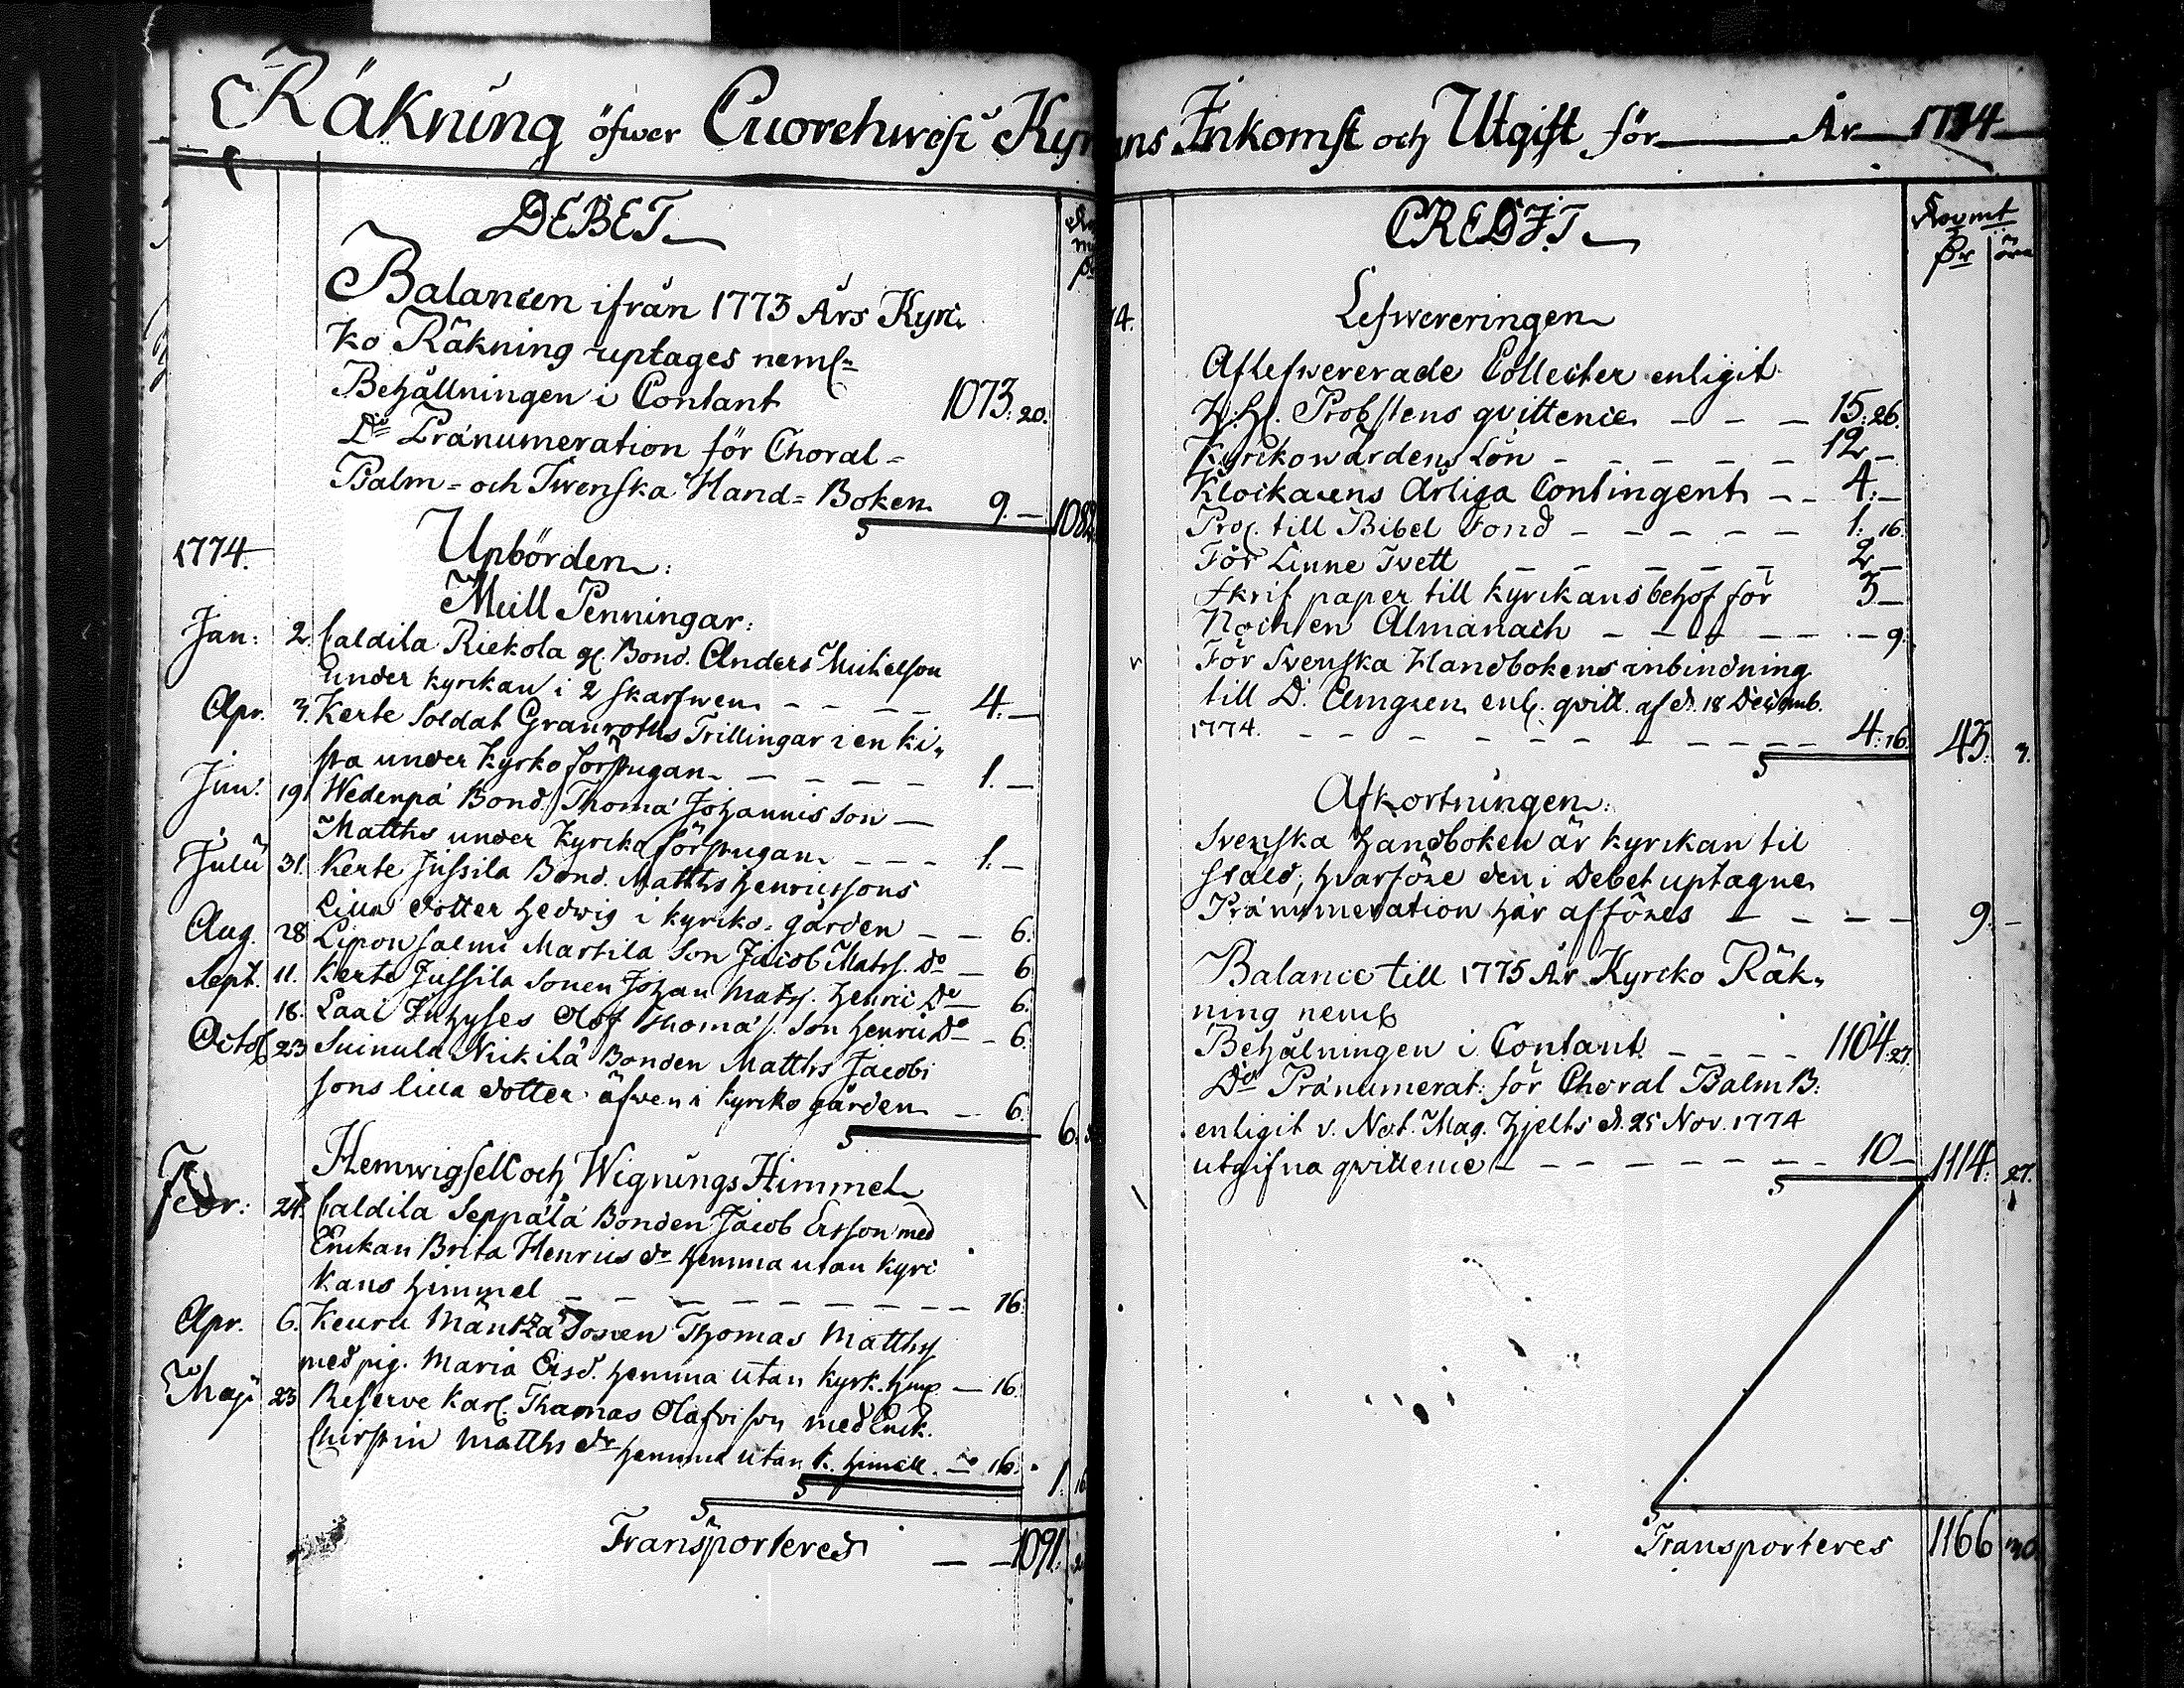 Räkning öfwer Cuorehwesi Kyr
DEBET
Balancen ifrån 1773 Års Kyrc
ko Räkning uptages neml:
Behållningen i Contant 1073: 20.
Do Pränumeration för Choral=
Psalm= och Swenska Hand= Boken 9. — 1082
1774.
Upbörden:
Mull Penningar:
Jan: 2. Caldila Riekola gl. Bond. Anders Michelson
under kyrckan i 2 skarfwen — — — — 4. —
Apr. 3. Kerte Soldat Granroths Trillingar i en ki,,
sta under Kyrko förstugan — — — — 1. —
Jun: 19 Wedenpä Bond. Thoma Johannis son —
Matths under Kyrcko förstugan — — — 1. —
Julii 31. Kerte Jussila Bond. Matths Henricssons
Lilla dotter Hedwig i kyrcko= gården — — 6.
Aug. 28 Liponsalmi Martila Son Jacob Matss. do — 6
Sept. 11. Kerte Jussila Sonen Johan Mats. Henric Do — 6.
18. Laai Olof Thomæ s. son Henric Do — 6.
Octob 23 Suinula Nickilä Bonden Matths Jacobs
sons lilla dotter äfwen i kyrcko gården — 6.
6.
Hemwigsell och Wignings Himmel
Febr: 24. Caldila Seppälä Bonden Jacob Ersson med
Enckan Brita Henrics dr hemma utan kyrc
kans himmel — — — — — — — — — 16.
Apr. 6. Keuru Mäntzä Sonen Thomas Matths
med pig. Maria Ersd. hemma utan kyrk. — 16.
Maji 23 Reserve Karl Thomas Olafsson med Enck.
Chirstin Matths dr hemma utan k. himell. — 16.
1. 16
Transporteres — — 1091.
ans Inkomst och Utgift för — År — 1774
CREDIT Kopmt
Dr öre
74.
Lefwereringen
Aflefwererade Collecter enligit
H: Hl. Probstens qvittence — — — 15: 26.
Kyrckowärdens Lön — — — — — 12 —
Klockarens Årliga Contingent — — 4: —
Pro. till Bibel Fond — — — — — 1. 16.
För Linne Tvett — — — — — 2 —
Skrif paper till kyrckans behof för 3 —
Noch en Almanach — — — — — . — 9.
För Svenska Handbokens inbindning
till D. Elmgren enl. qvitt. af d. 18 Decemb.
1774. — — — — — — — — — — 4: 16. 43. 3.
Afkortningen:
Svenska Handboken är kyrckan til
stäld, hvarföre den i Debet uptagne
Pränumeration här afföres — — — — 9. —
Balance till 1775 År Kyrcko Räk,,
ning neml
Behålningen i Contant — — — — 1104: 27.
Do Pränumerat: för Choral Psalm B:
enligit v. Not. Mag. Hjelts d. 25 Nov. 1774
utgifna qvittence — — — — — — — — 10 — 1114: 27.
Transporteres 1166 30